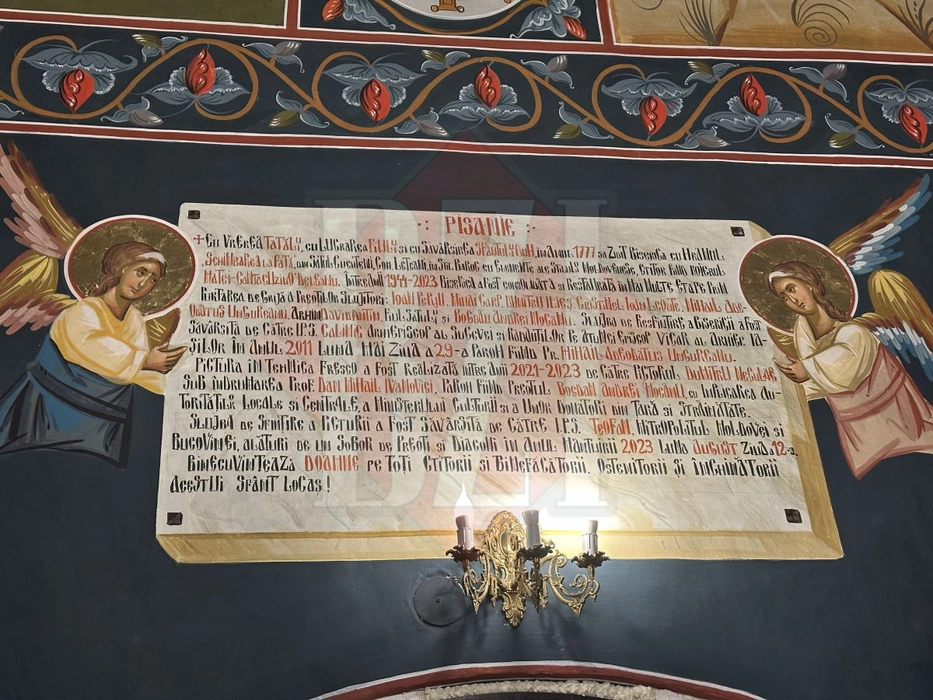 .: PISANIE :.
+Cu VREREA TATĂLUI, cu LUCRAREA FIULUI și cu SĂVÂRȘIREA SFÂNTULUI DUH, în ANUL 1777 s-a ZIDIT BISERICA cu HRAMUL
din SATUL CUCUTENI, COM. LEȚCANI, în STIL BAROC cu ELEMENTE ALE STILULUI MOLDOVENESC, CTITOR FIIND BOIERUL
ÎNTRE ANII 1944-2023 BISERICA A FOST CONSOLIDATĂ și RESTAURATĂ ÎN MAI MULTE ETAPE PRIN
PURTAREA DE GRIJĂ A PREOȚILOR SLUJITORI: IOAN MIHAI CARP, DUMITRU IOAN MIHAIL AN-
UNGUREANU, ARHIM. și BOGDAN ANDREI MOCANU. SLUJBA DE RESFINȚIRE A BISERICII A FOST
SĂVÂRȘITĂ DE CĂTRE I.P.S. CALINIC ARHIEPISCOP AL SUCEVEI ȘI RĂDĂUȚILOR PE ATUNCI EPISCOP VICAR AL ARHIEP. IA-
ȘILOR ÎN ANUL 2011 LUNA MAI ZIUA A 29-A PAROH FIIND PR. MIHAIL UNGUREANU.
PICTURA ÎN TEHNICA FRESCO A FOST REALIZATĂ ÎNTRE ANII 2021-2023 DE CĂTRE PICTORUL DUMITRU
SUB ÎNDRUMAREA PROF. DAN MIHAIL IVANOVICI, PAROH FIIND PREOTUL BOGDAN ANDREI MOCANU, CU AU-
TORITĂȚILOR LOCALE și CENTRALE, A MINISTERULUI CULTURII și A UNOR DONATORI DIN ȚARĂ și STRĂINĂTATE.
SLUJBA DE SFINȚIRE A PICTURII A FOST SĂVÂRȘITĂ DE CĂTRE I.P.S. TEOFAN, MITROPOLITUL MOLDOVEI și
BUCOVINEI, ALĂTURI DE UN SOBOR DE PREOȚI și DIACONI ÎN ANUL MÂNTUIRII 2023 LUNA AUGUST ZIUA A 12-A.
BINECUVINTEAZĂ DOAMNE PE TOȚI CTITORII și BINEFĂCĂTORII, OSTENITORII ȘI ÎNCHINĂTORII
ACESTUI SFÂNT LOCAȘ!
BZI
BZI